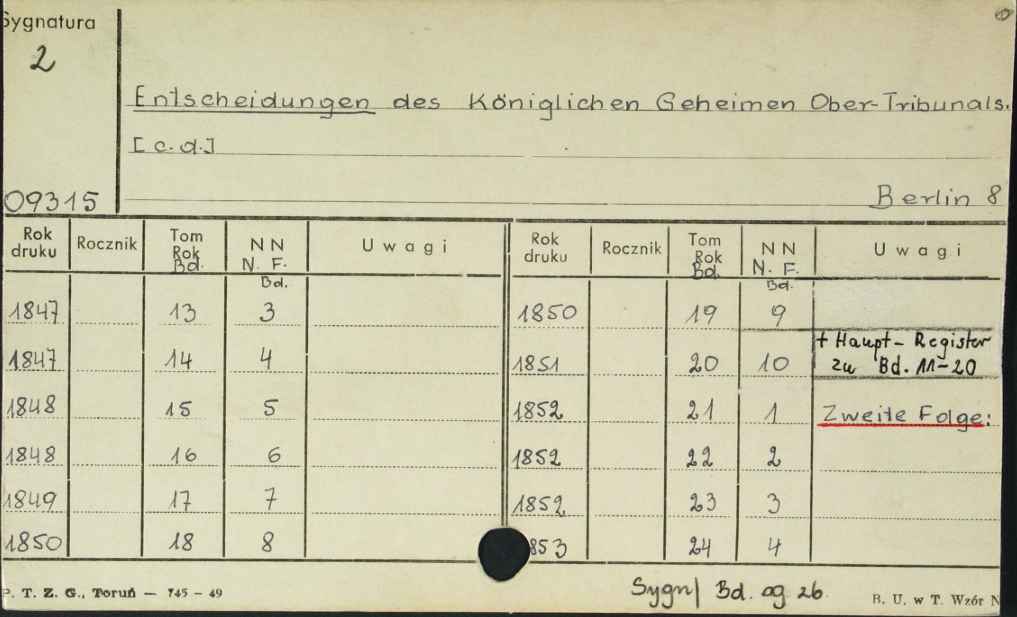 Sygnatura
2
Entscheidungen des Königlichen Geheimen Ober-Tribunals.
[c.d.]
09315 Berlin 8
Rok druku Rocznik Tom Rok Bd. NN N. F. Bd. Uwagi Rok druku Rocznik Tom Rok Bd. NN N. F. Bd. Uwagi
1847 13 3 1850 19 9
1847 14 4 1851 20 10 + Haupt-Register zu Bd. 11-20
1848 15 5 1852 21 1 Zweite Folge:
1848 16 6 1852 22 2
1849 17 7 1852 23 3
1850 18 8 853 24 4
P. T. Z. G., Toruń — 745 - 49 Sygn/ Bd. 26. B. U. w T. Wzór N